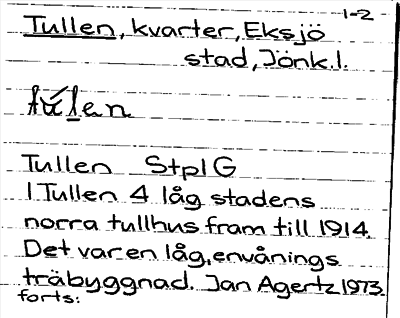 1-2
Tullen, kvarter, Eksjö
stad, Jönk.l.
Tullen StplG
I Tullen 4 låg stadens
norra tullhus fram till 1914.
Det var en låg, envånings
träbyggnad. Jan Agertz 1973.
forts: